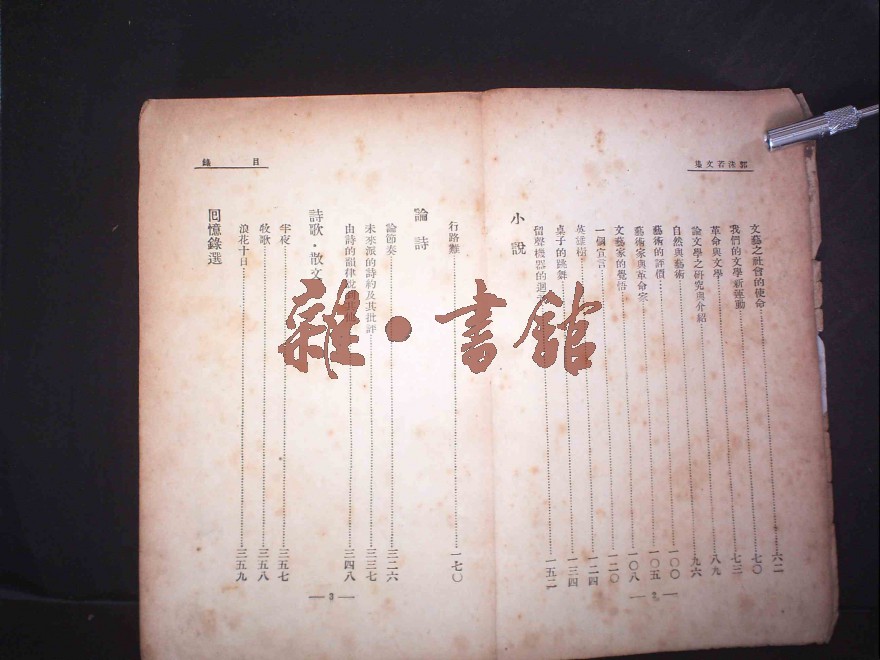 郭沫若文集
文藝之社會的使命……六二
我們的文學新運動……七〇
革命與文學……七三
論文學之研究與介紹……八九
自然與藝術……九六
藝術的評價……一〇〇
藝術家與革命家……一〇五
文藝家的覺悟……一〇八
一個宣言……一二〇
英雄樹……一二四
桌子的跳舞……一三四
留聲機器的迴……一五二
小說
— 2 —
目錄
行路難……一七〇
論詩
論節奏……三二六
未來派的詩約及其批評……三三七
由詩的韻律說……三四八
詩歌·散文
半夜……三五七
牧歌……三五八
浪花十日……三五九
回憶錄選
— 3 —
雜·書館